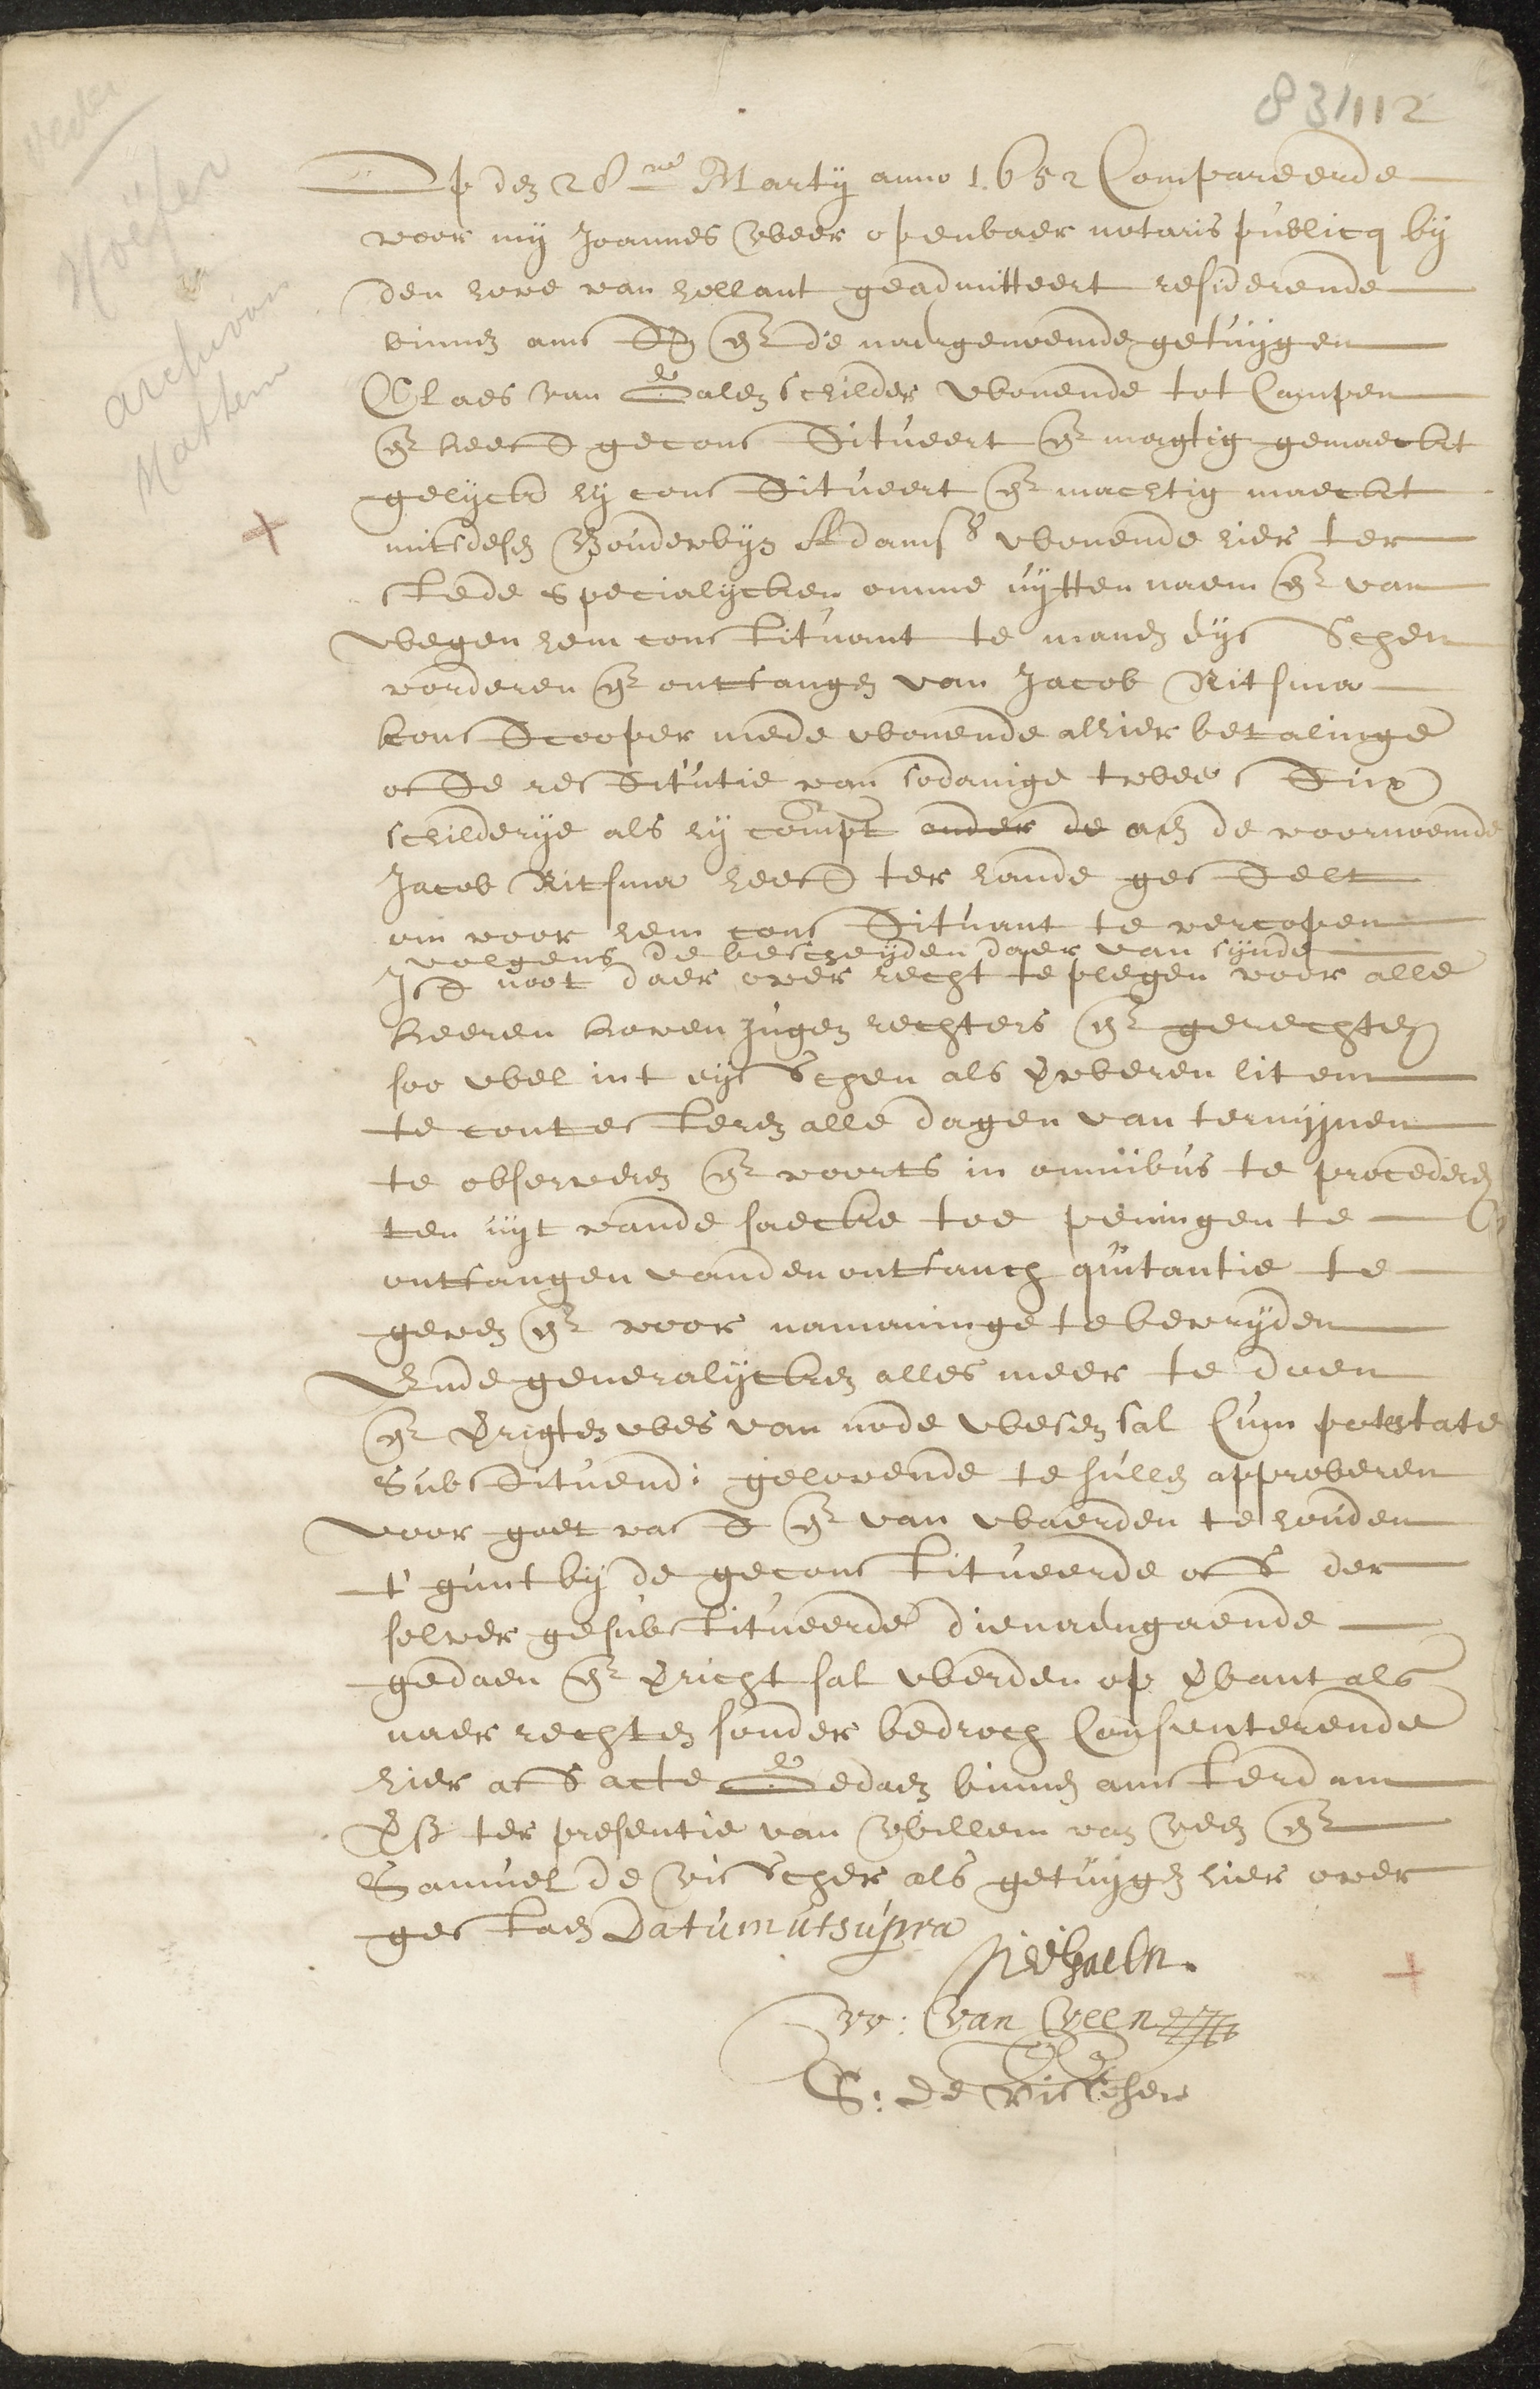 83/112
veder
Höfer
archivar
Hattem
Op den 28en Marty anno 1652 Compareerde
voor my Joannes Weer openbaer notaris publicq by
den hove van hollant geadmitteert resideerende
binnen amst. en de naergenoemde getuygen
Claes van Galen schilder wonende tot Campen
en heeft geconstitueert en magtig gemaeckt
gelyck hy constitueert en machtig maeckt
mitsdesen Boudewyn Adams wonende hier ter
stede specialycken omme uytten naem en van
wegen hem constituant te manen eysschen
vorderen en ontfangen van Jacob Ritsma
konstcooper mede wonende alhier betalinge
ofte restitutie van sodanige twee stux
schilderye als hy compt onder de aen de voornoemde
Jacob Ritsma heeft ter hande gestelt
om voor hem constituant te vercopen
volgens de bescheyden daer van synde
Ist noot daer over recht te plegen voor alle
heeren hoven Jugen rechters en gerechten
soo wel int eysschen als verweren litem
te contesteren alle dagen van termynen
te observeren en voorts in omnibus te procederen
ten uyt vande saecke toe peningen te
ontfangen vanden ontfanch quitantie te
geven en voor namaninge te bevryden
Ende generalycken alles meer te doen
en verrigten wes van node wesen sal Cum potestate
substituendi gelovende te sullen approberen
voor goet vast en van waerden te houden
t' gunt by de geconstitueerde ofte der
selver gesubstitueerde dienaengaende
gedaen en verricht sal werden op verbant als
naer rechten sonder bedroch Consenterende
hier af acte Gedaen binnen amsterdam
ter presentie van Willem van Veen en
Samuel de Visscher als getuygen hier over
gestaen Datum ut supra
W: Van Veen
S: de Visscher